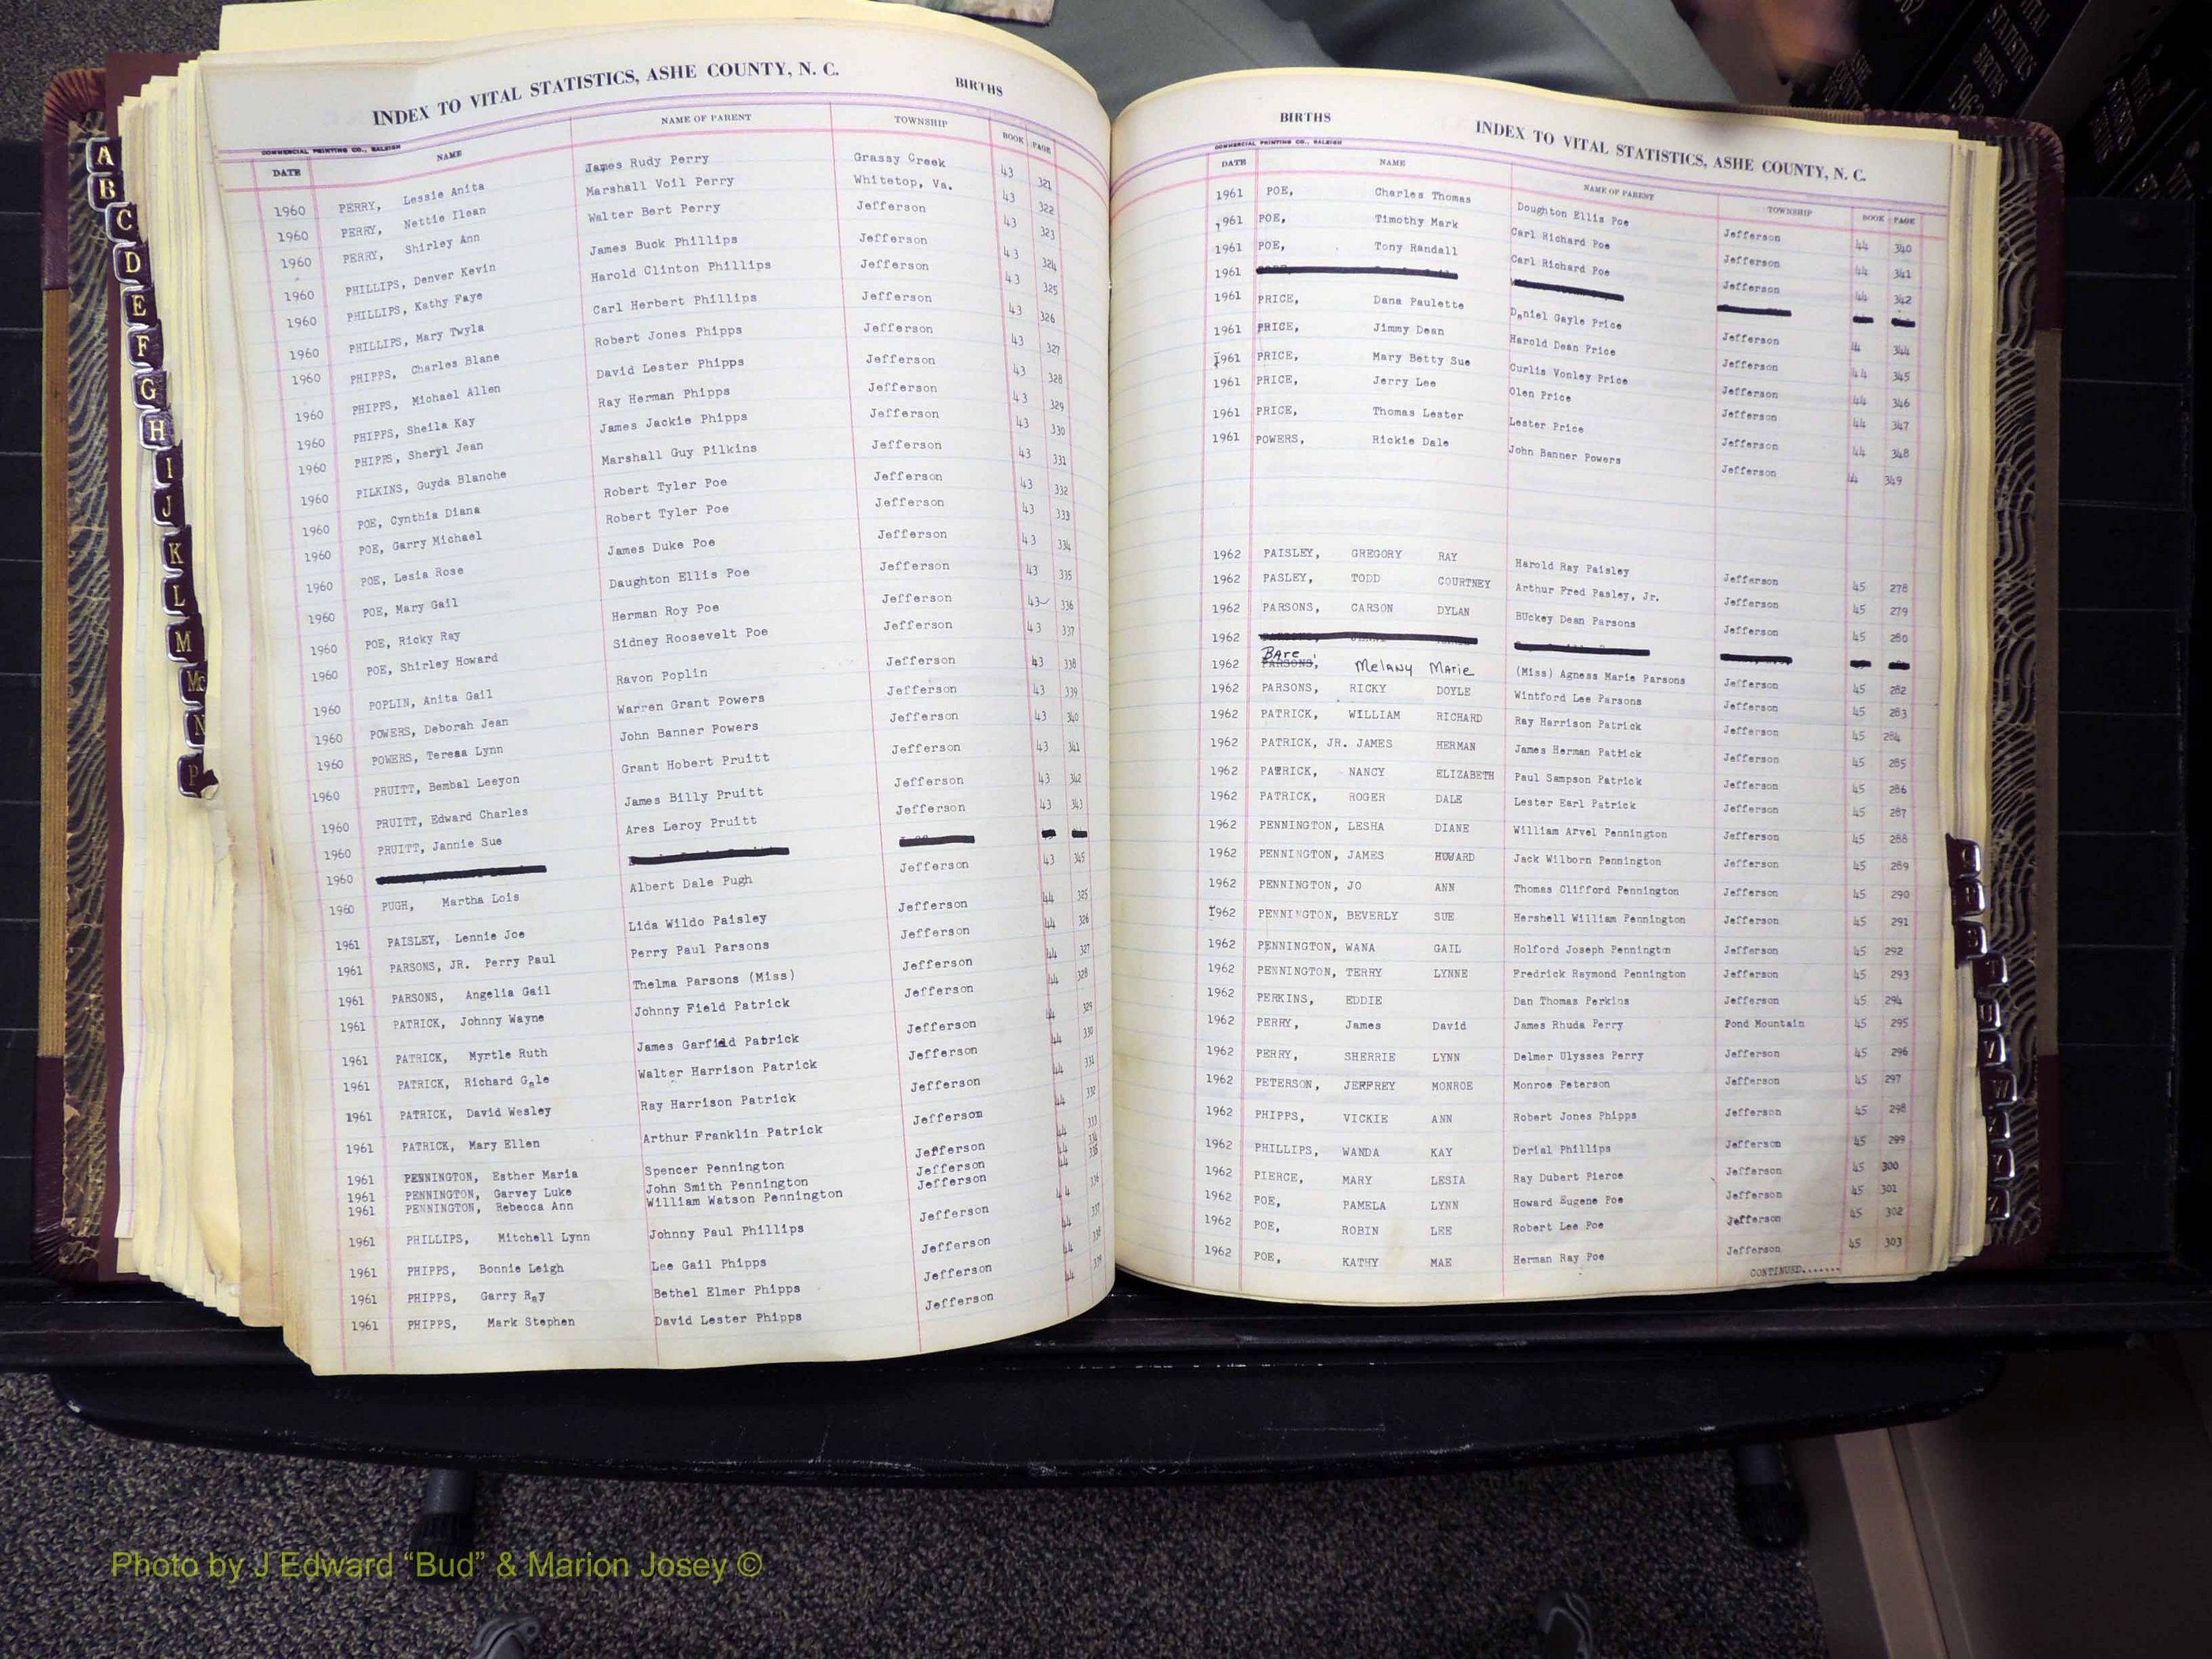 INDEX TO VITAL STATISTICS, ASHE COUNTY, N. C. BIRTHS
COMMERCIAL PRINTING CO., RALEIGH
DATE NAME NAME OF PARENT TOWNSHIP BOOK PAGE
1960 PERRY, Lessie Anita James Rudy Perry Grassy Creek 43 321
1960 PERRY, Nettie Ilean Marshall Voil Perry Whitetop, Va. 43 322
1960 PERRY, Shirley Ann Walter Bert Perry Jefferson 43 323
1960 PHILLIPS, Denver Kevin James Buck Phillips Jefferson 43 324
1960 PHILLIPS, Kathy Faye Harold Clinton Phillips Jefferson 43 325
1960 PHILLIPS, Mary Twyla Carl Herbert Phillips Jefferson 43 326
1960 PHIPPS, Charles Blane Robert Jones Phipps Jefferson 43 327
1960 PHIPPS, Michael Allen David Lester Phipps Jefferson 43 328
1960 PHIPPS, Sheila Kay Ray Herman Phipps Jefferson 43 329
1960 PHIPPS, Sheryl Jean James Jackie Phipps Jefferson 43 330
1960 PILKINS, Guyda Blanche Marshall Guy Pilkins Jefferson 43 331
1960 POE, Cynthia Diana Robert Tyler Poe Jefferson 43 332
1960 POE, Garry Michael Robert Tyler Poe Jefferson 43 333
1960 POE, Lesia Rose James Duke Poe Jefferson 43 334
1960 POE, Mary Gail Daughton Ellis Poe Jefferson 43 335
1960 POE, Ricky Ray Herman Roy Poe Jefferson 43 336
1960 POE, Shirley Howard Sidney Roosevelt Poe Jefferson 43 337
1960 POPLIN, Anita Gail Ravon Poplin Jefferson 43 338
1960 POWERS, Deborah Jean Warren Grant Powers Jefferson 43 339
1960 POWERS, Teresa Lynn John Banner Powers Jefferson 43 340
1960 PRUITT, Bembal Leeyon Grant Hobert Pruitt Jefferson 43 341
1960 PRUITT, Edward Charles James Billy Pruitt Jefferson 43 342
1960 PRUITT, Jannie Sue Ares Leroy Pruitt Jefferson 43 343
1960
1960 PUGH, Martha Lois Albert Dale Pugh Jefferson 43 345
1961 PAISLEY, Lennie Joe Lida Wildo Paisley Jefferson 44 325
1961 PARSONS, JR. Perry Paul Perry Paul Parsons Jefferson 44 326
1961 PARSONS, Angelia Gail Thelma Parsons (Miss) Jefferson 44 327
1961 PATRICK, Johnny Wayne Johnny Field Patrick Jefferson 44 328
1961 PATRICK, Myrtle Ruth James Garfield Patrick Jefferson 44 329
1961 PATRICK, Richard Gale Walter Harrison Patrick Jefferson 44 330
1961 PATRICK, David Wesley Ray Harrison Patrick Jefferson 44 331
1961 PATRICK, Mary Ellen Arthur Franklin Patrick Jefferson 44 332
1961 PENNINGTON, Esther Maria Spencer Pennington Jefferson 44 333
1961 PENNINGTON, Garvey Luke John Smith Pennington Jefferson 44 334
1961 PENNINGTON, Rebecca Ann William Watson Pennington Jefferson 44 335
1961 PHILLIPS, Mitchell Lynn Johnny Paul Phillips Jefferson 44 336
1961 PHIPPS, Bonnie Leigh Lee Gail Phipps Jefferson 44 337
1961 PHIPPS, Garry Ray Bethel Elmer Phipps Jefferson 44 338
1961 PHIPPS, Mark Stephen David Lester Phipps Jefferson 44 339
A
B
C
D
E
F
G
H
I
J
K
L
M
Mc
N
P
BIRTHS INDEX TO VITAL STATISTICS, ASHE COUNTY, N. C.
COMMERCIAL PRINTING CO., RALEIGH
DATE NAME NAME OF PARENT TOWNSHIP BOOK PAGE
1961 POE, Charles Thomas Doughton Ellis Poe Jefferson 44 340
1961 POE, Timothy Mark Carl Richard Poe Jefferson 44 341
1961 POE, Tony Randall Carl Richard Poe Jefferson 44 342
1961
1961 PRICE, Dana Paulette Daniel Gayle Price Jefferson 44 344
1961 PRICE, Jimmy Dean Harold Dean Price Jefferson 44 345
1961 PRICE, Mary Betty Sue Curlis Vonley Price Jefferson 44 346
1961 PRICE, Jerry Lee Olen Price Jefferson 44 347
1961 PRICE, Thomas Lester Lester Price Jefferson 44 348
1961 POWERS, Rickie Dale John Banner Powers Jefferson 44 349
1962 PAISLEY, GREGORY RAY Harold Ray Paisley Jefferson 45 278
1962 PASLEY, TODD COURTNEY Arthur Fred Pasley, Jr. Jefferson 45 279
1962 PARSONS, CARSON DYLAN BUckey Dean Parsons Jefferson 45 280
1962
1962 BAre PARSONS, MelANy MArie (Miss) Agness Marie Parsons Jefferson 45 282
1962 PARSONS, RICKY DOYLE Wintford Lee Parsons Jefferson 45 283
1962 PATRICK, WILLIAM RICHARD Ray Harrison Patrick Jefferson 45 284
1962 PATRICK, JR. JAMES HERMAN James Herman Patrick Jefferson 45 285
1962 PATRICK, NANCY ELIZABETH Paul Sampson Patrick Jefferson 45 286
1962 PATRICK, ROGER DALE Lester Earl Patrick Jefferson 45 287
1962 PENNINGTON, LESHA DIANE William Arvel Pennington Jefferson 45 288
1962 PENNINGTON, JAMES HOWARD Jack Wilborn Pennington Jefferson 45 289
1962 PENNINGTON, JO ANN Thomas Clifford Pennington Jefferson 45 290
1962 PENNINGTON, BEVERLY SUE Hershell William Pennington Jefferson 45 291
1962 PENNINGTON, WANA GAIL Holford Joseph Pennington Jefferson 45 292
1962 PENNINGTON, TERRY LYNNE Fredrick Raymond Pennington Jefferson 45 293
1962 PERKINS, EDDIE Dan Thomas Perkins Jefferson 45 294
1962 PERRY, James David James Rhuda Perry Pond Mountain 45 295
1962 PERRY, SHERRIE LYNN Delmer Ulysses Perry Jefferson 45 296
1962 PETERSON, JEFFREY MONROE Monroe Peterson Jefferson 45 297
1962 PHIPPS, VICKIE ANN Robert Jones Phipps Jefferson 45 298
1962 PHILLIPS, WANDA KAY Derial Phillips Jefferson 45 299
1962 PIERCE, MARY LESIA Ray Dubert Pierce Jefferson 45 300
1962 POE, PAMELA LYNN Howard Eugene Poe Jefferson 45 301
1962 POE, ROBIN LEE Robert Lee Poe Jefferson 45 302
1962 POE, KATHY MAE Herman Ray Poe Jefferson 45 303
CONTINUED.......
T
V
W
Y
Z
VITAL STATISTICS BIRTHS
Photo by J Edward “Bud” & Marion Josey ©